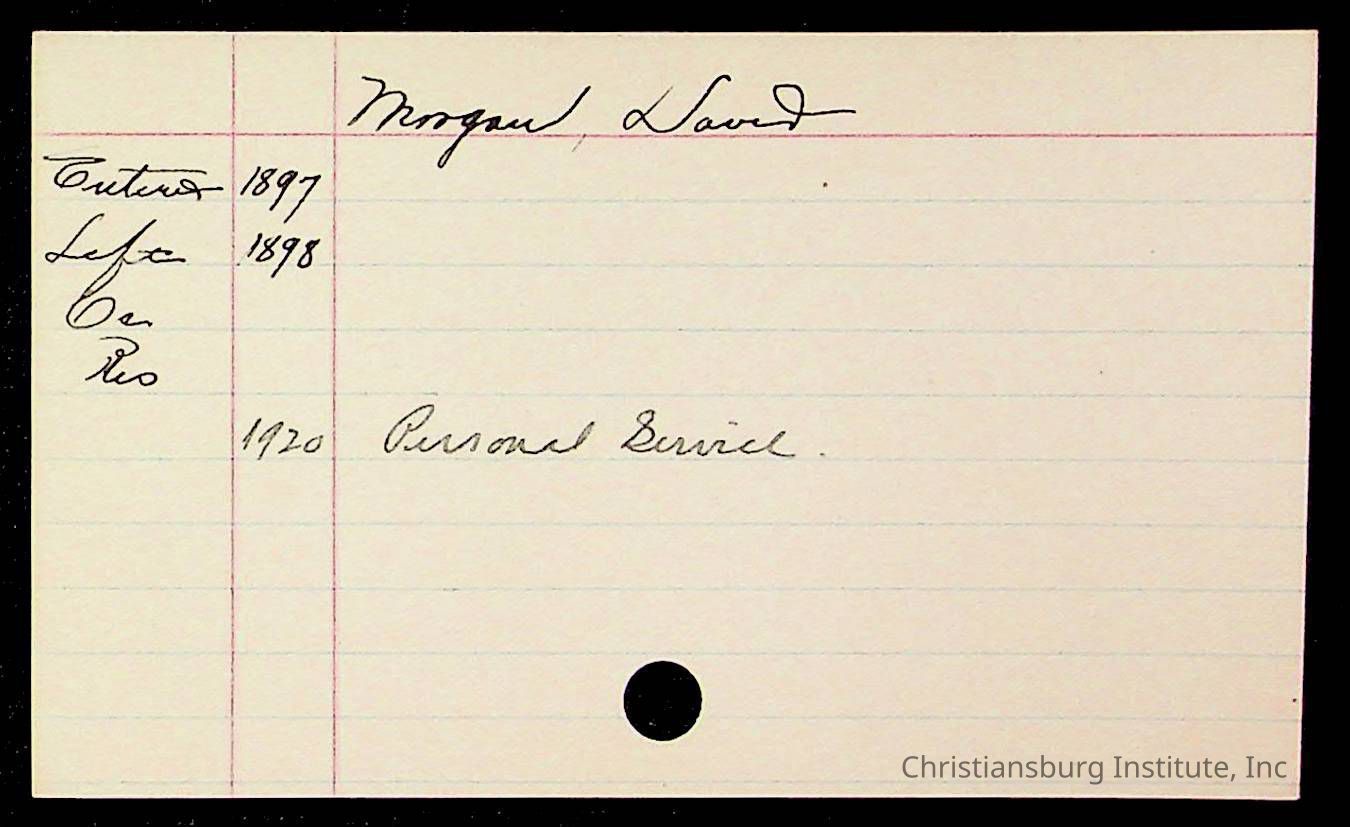 Morgan, David
Entered 1897
Left 1898
Oc
Res
1920 Personal Service.
Christiansburg Institute, Inc